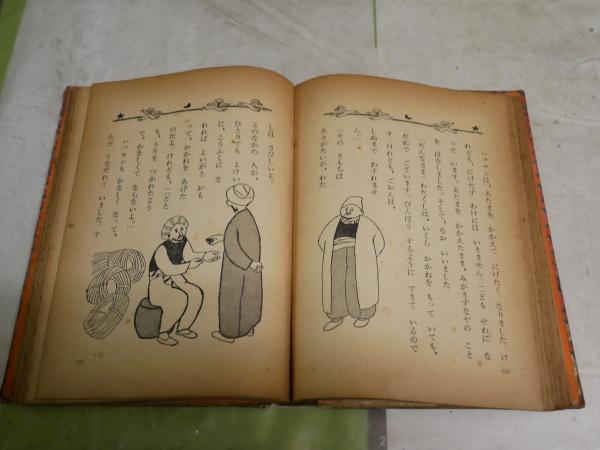 ハッサンは、あたまを かかえて にげたく なりました。け
れども、にげだす わけには いきません。二ども せわに な
って います。あたまを かかえたまま、みがきずなやの こと
を はなしました。そして、なお いいました。
「だんなさま。わたくしは、いくら おかねを もって いても、
だめで ございます。びんぼう するように できて いるので
す。けれども、ごおんは、
しぬまで わすれませ
ん。」
「その きもちは
ありがたいが、わた
しは さびしいよ。
よのなかの 人が、
ひとりでも よけい
に、こうふくに な
れれば よいがと おも
って、おかねを あげた
のだよ。けれども、二どと
も、うそを つかれたよう
で、かなしくて ならないよ。」
ハッサンも かなしく なって、
ただ、うなだれて いました。す